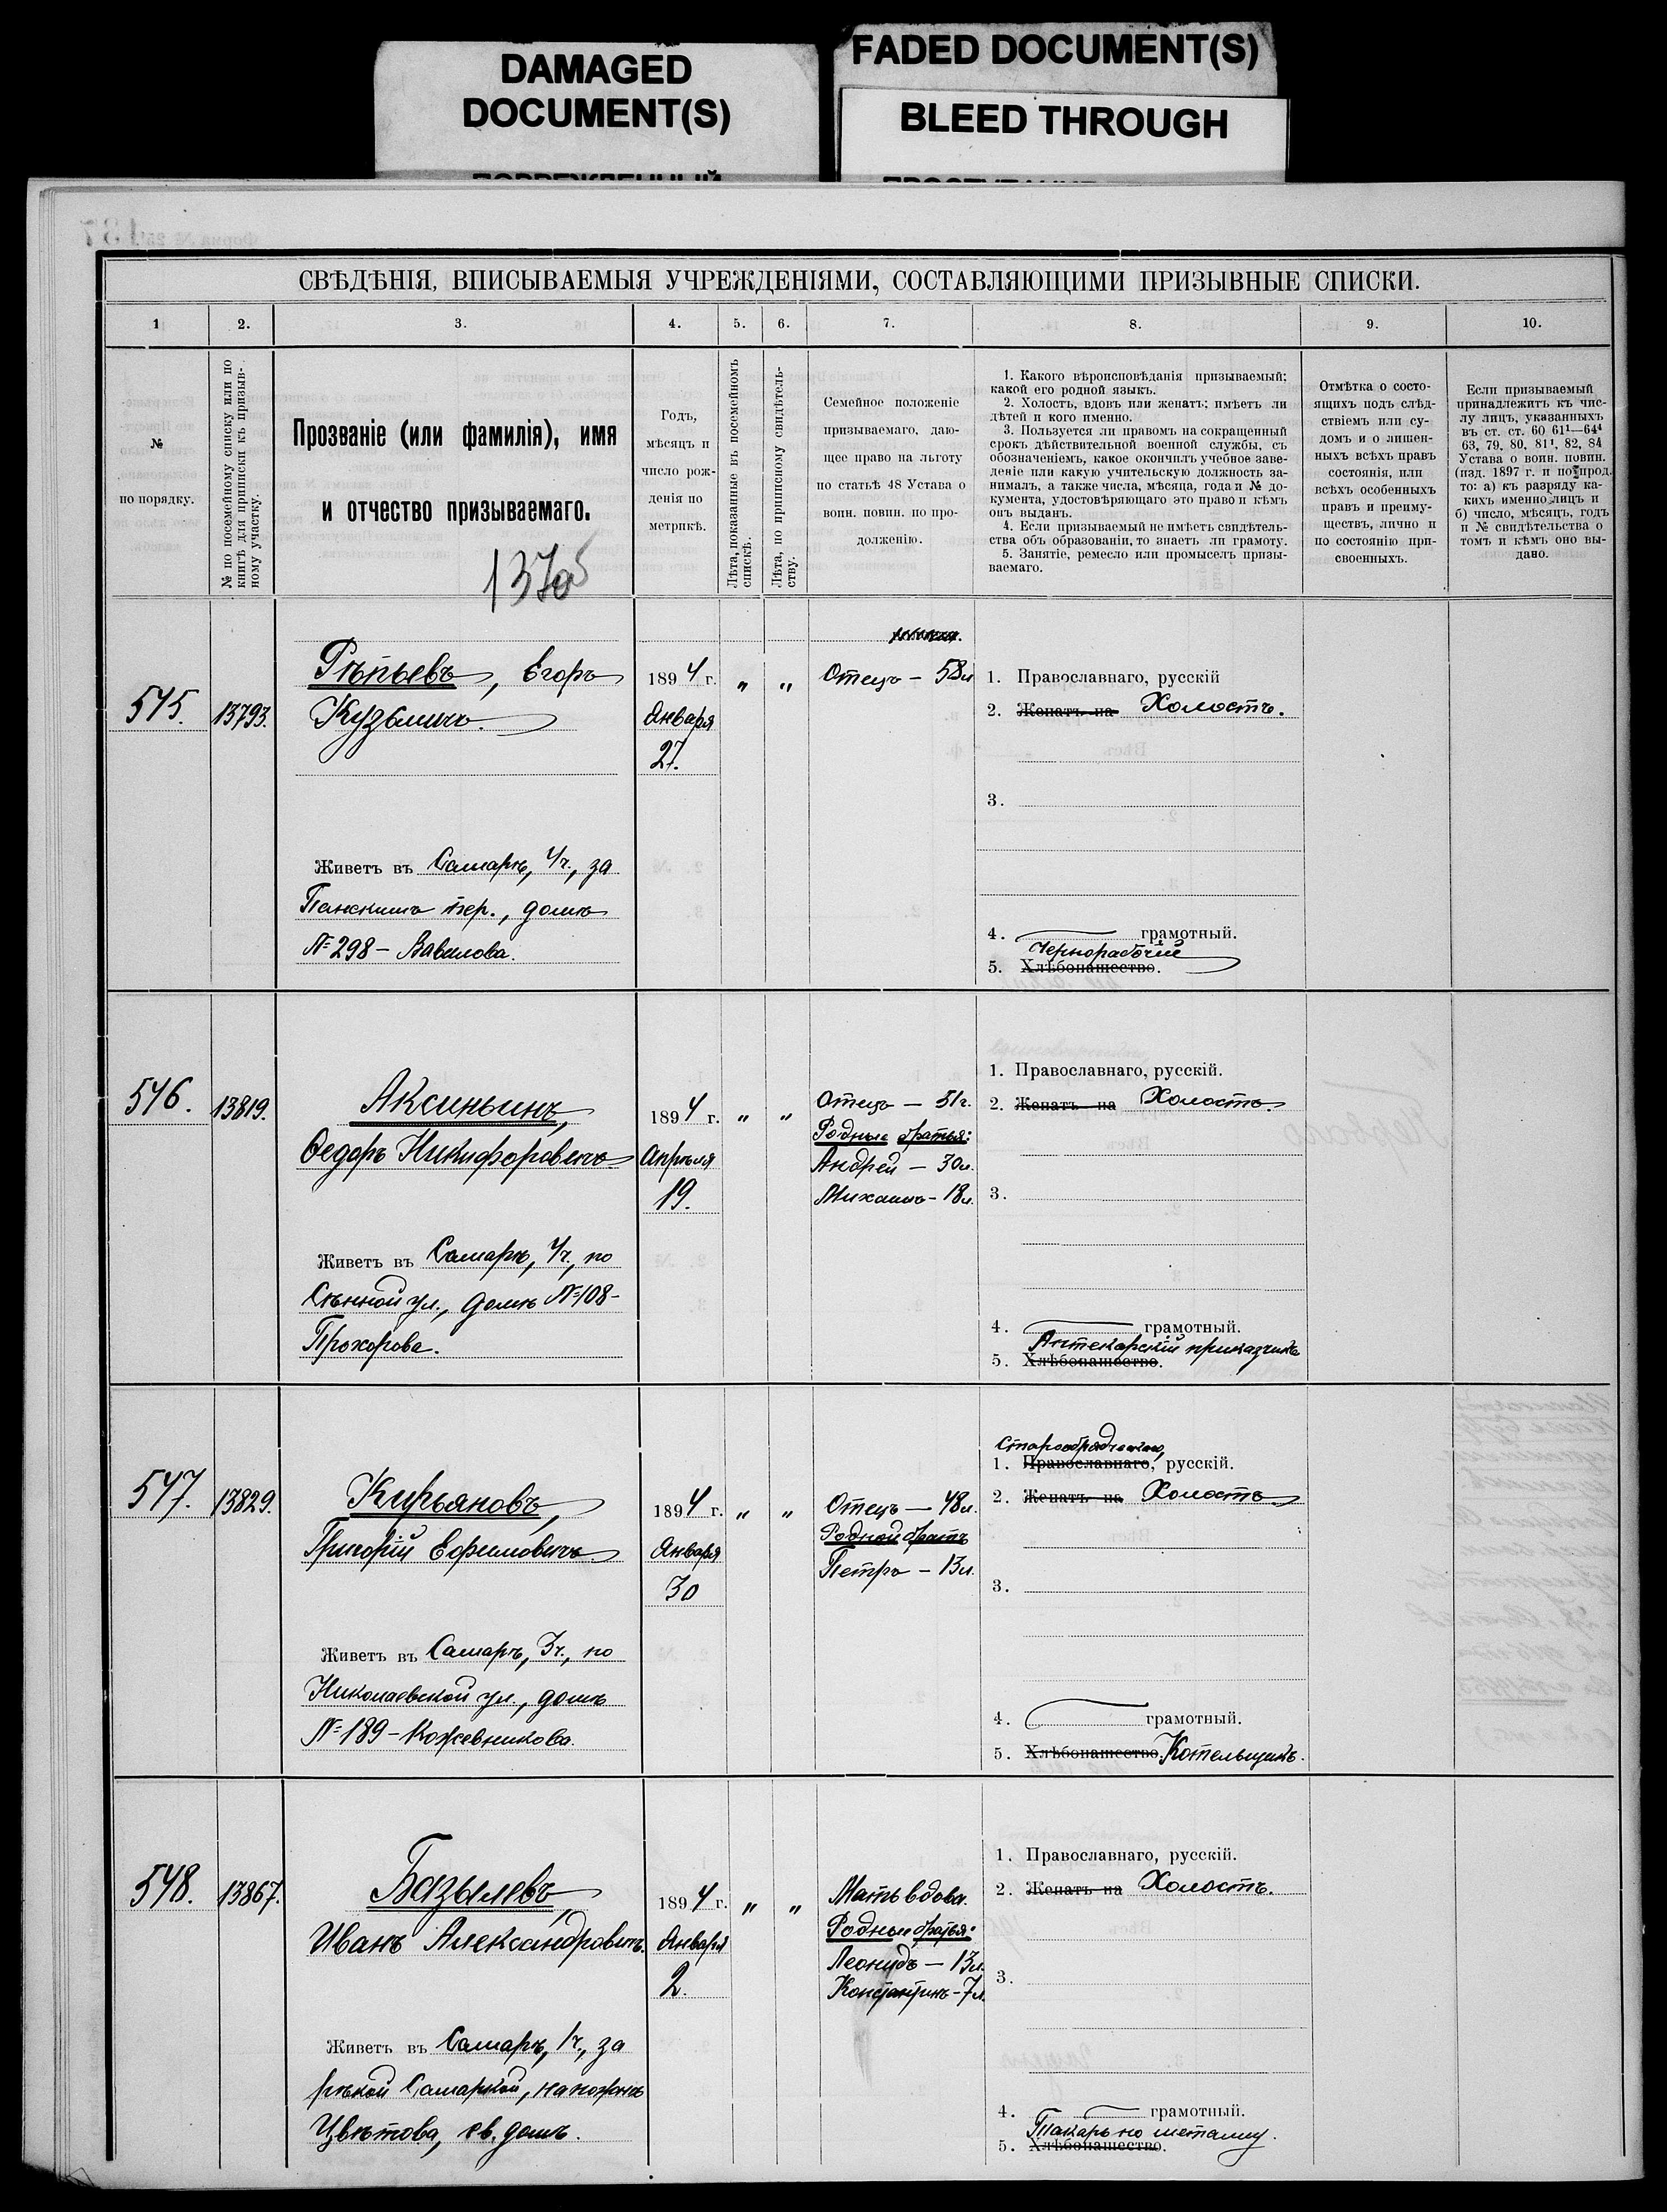 DAMAGED
DOCUMENT(S)
FADED DOCUMENT(S)
BLEED THROUGH
СВѢДѢНІЯ, ВПИСЫВАЕМЫЯ УЧРЕЖДЕНІЯМИ, СОСТАВЛЯЮЩИМИ ПРИЗЫВНЫЕ СПИСКИ.
1 2. 3. 4. 5. 6. 7. 8. 9. 10.
№
по порядку.
№ по посемейному списку или по
книгѣ для приписки къ призыв-
ному участку.
Прозваніе (или фамилія), имя
и отчество призываемаго.
Годъ,
мѣсяцъ и
число рож-
денія по
метрикѣ.
Лѣта, показанные въ посемейномъ
спискѣ.
Лѣта, по приписному свидѣтель-
ству.
Семейное положеніе
призываемаго, даю-
щее право на льготу
по статьѣ 48 Устава о
воин. повин. по про-
долженію.
1. Какого вѣроисповѣданія призываемый;
какой его родной языкъ.
2. Холостъ, вдовъ или женатъ; имѣетъ ли
дѣтей и кого именно.
3. Пользуется ли правомъ на сокращенный
срокъ дѣйствительной военной службы, съ
обозначеніемъ, какое окончилъ учебное заве-
деніе или какую учительскую должность за-
нималъ, а также числа, мѣсяца, года и № до-
кумента, удостовѣряющаго это право и кѣмъ
онъ выданъ.
4. Если призываемый не имѣетъ свидѣтель-
ства объ образованіи, то знаетъ ли грамоту.
5. Занятіе, ремесло или промыселъ призы-
ваемаго.
Отмѣтка о состо-
ящихъ подъ слѣд-
ствіемъ или су-
домъ и о лишен-
ныхъ всѣхъ правъ
состоянія, или
всѣхъ особенныхъ
правъ и преиму-
ществъ, лично и
по состоянію при-
своенныхъ.
Если призываемый
принадлежитъ къ чис-
лу лицъ, указанныхъ
въ ст. ст. 60 61¹—64⁴
63, 79, 80, 81¹, 82, 84
Устава о воин. повин.
(изд. 1897 г. и по прод.
то: а) къ разряду ка-
кихъ именно лицъ и
б) число, мѣсяцъ, годъ
и № свидѣтельства о
томъ и кѣмъ оно вы-
дано.
545. 13793.
Рѣпьевъ, Егоръ
Кузьмичъ.
Живетъ въ Самарѣ, 4ч., за
Панскимъ пер., домъ
№ 298 – Вавилова.
1894 г.
Января
27.
" "
Отецъ – 58л
1. Православнаго, русскій
2. Женатъ на Холостъ.
3.
4. грамотный.
Чернорабочій
5. Хлѣбопашество.
546. 13819.
Аксиньинъ,
Ѳедоръ Никифоровичъ
Живетъ въ Самарѣ, 4ч., по
Сѣнной ул., домъ № 108 –
Прохорова.
1894 г.
Апрѣля
19.
" "
Отецъ – 51г.
Родные братья:
Андрей – 30л.
Михаилъ – 18л.
1. Православнаго, русскій.
2. Женатъ на Холостъ.
3.
4. грамотный.
Аптекарскій приказчикъ
5. Хлѣбопашество.
547. 13829.
Кирьяновъ,
Григорій Ефимовичъ
Живетъ въ Самарѣ, 3ч., по
Николаевской ул., домъ
№ 189 – Кожевникова.
1894 г.
Января
30
" "
Отецъ – 48л.
Родной братъ
Петръ – 13л.
Старообрядческаго,
1. Православнаго, русскій.
2. Женатъ на Холостъ
3.
4. грамотный.
5. Хлѣбопашество. Котельщикъ.
548. 13867.
Базылевъ,
Иванъ Александровичъ.
Живетъ въ Самарѣ, 1ч., за
рѣкой Самаркой,
Цвѣтова, св. домъ.
1894 г.
Января
2.
" "
Мать вдова.
Родные братья:
Леонидъ – 13л.
Константинъ – 7л.
1. Православнаго, русскій.
2. Женатъ на Холостъ.
3.
4. грамотный.
Токарь по металлу.
5. Хлѣбопашество.